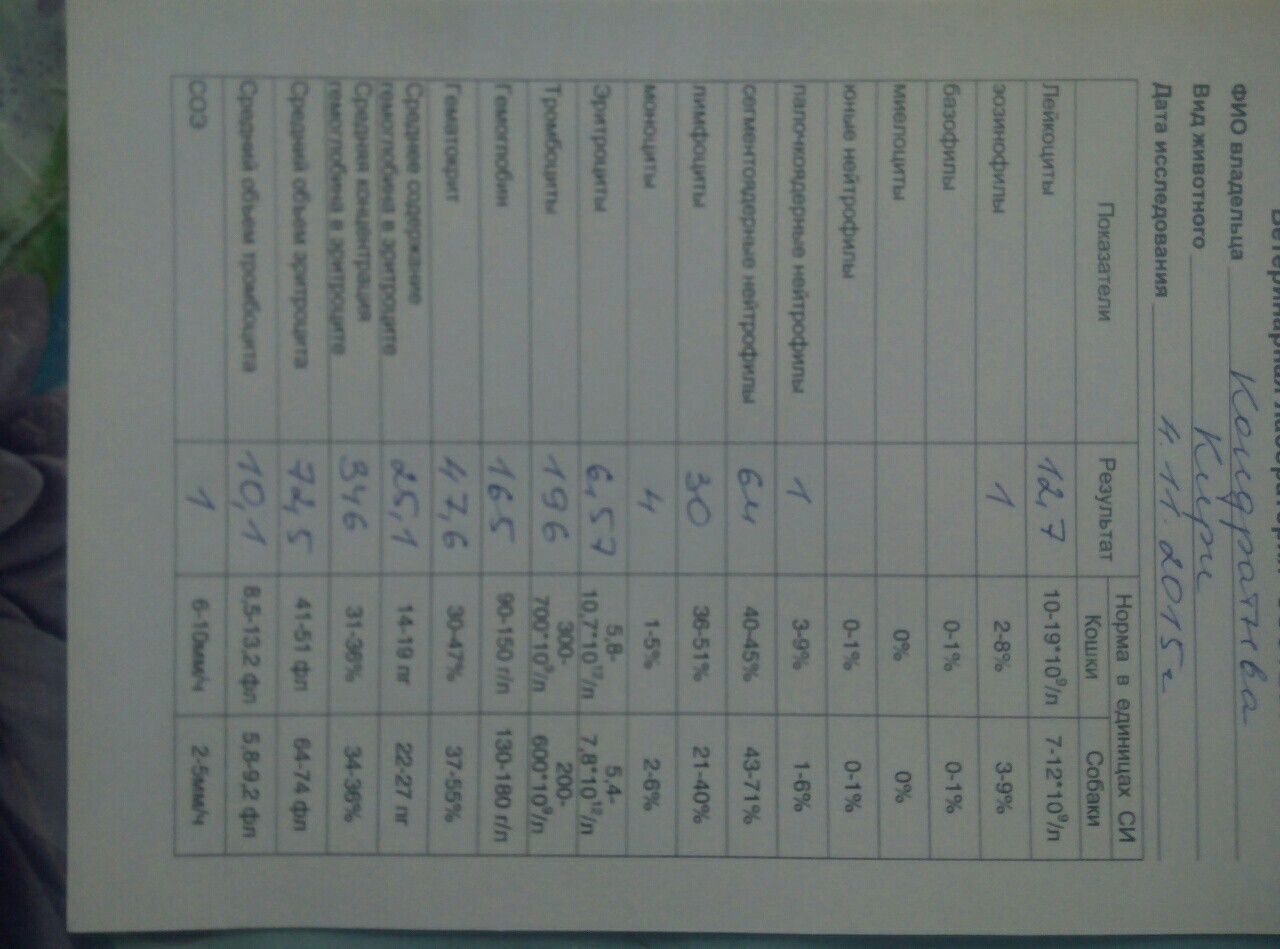 ФИО владельца Кондратьева
Вид животного Кири
Дата исследования 4.11.2015г
Показатели Результат Норма в единицах СИ
Кошки Собаки
Лейкоциты 12,7 10-19*10⁹/л 7-12*10⁹/л
эозинофилы 1 2-8% 3-9%
базофилы 0-1% 0-1%
миелоциты 0% 0%
юные нейтрофилы 0-1% 0-1%
палочкоядерные нейтрофилы 1 3-9% 1-6%
сегментоядерные нейтрофилы 64 40-45% 43-71%
лимфоциты 30 36-51% 21-40%
моноциты 4 1-5% 2-6%
Эритроциты 6,57 5,8-10,7*10¹²/л 5,4-7,8*10¹²/л
Тромбоциты 196 300-700*10⁹/л 200-600*10⁹/л
Гемоглобин 165 90-150 г/л 130-180 г/л
Гематокрит 47,6 30-47% 37-55%
Среднее содержание
гемоглобина в эритроците 25,1 14-19 пг 22-27 пг
Средняя концентрация
гемоглобина в эритроците 346 31-36% 34-36%
Средний объем эритроцита 72,5 41-51 фл 64-74 фл
Средний объем тромбоцита 10,1 8,5-13,2 фл 5,8-9,2 фл
СОЭ 1 6-10мм/ч 2-5мм/ч